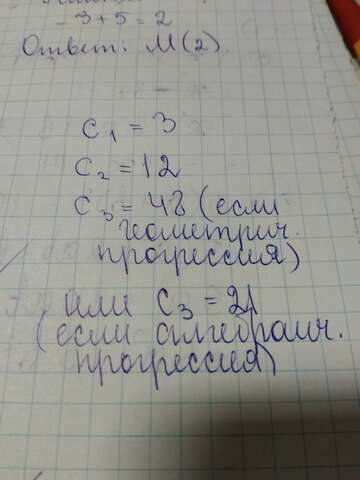 - 3 + 5 = 2
Ответ: M(2).
c₁ = 3
c₂ = 12
c₃ = 48 (если
геометрич.
прогрессия)
или c₃ = 21
(если алгебраич.
прогрессия)